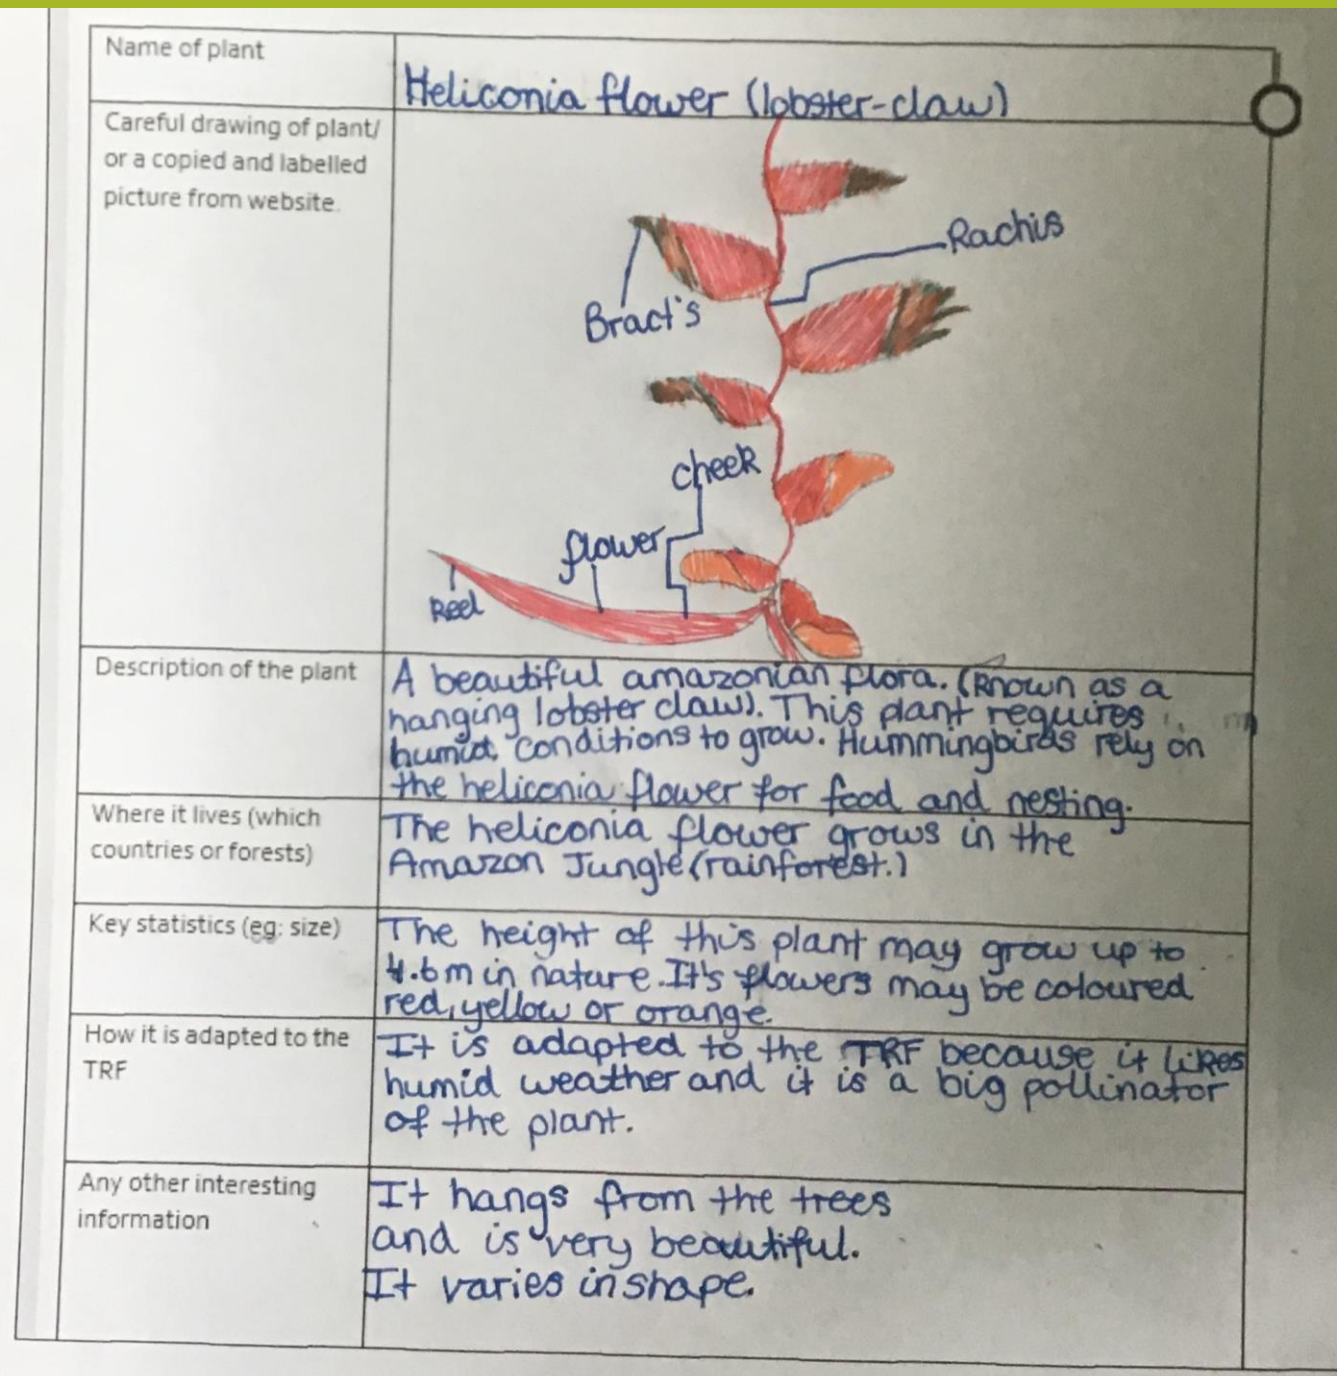 Name of plant
Heliconia flower (lobster-claw)
Careful drawing of plant/
or a copied and labelled
picture from website.
Rachis
Bract's
cheek
flower
Keel
Description of the plant
A beautiful amazonian flora. (Known as a
hanging lobster claw). This plant requires
humid conditions to grow. Hummingbirds rely on
the heliconia flower for food and nesting.
Where it lives (which
countries or forests)
The heliconia flower grows in the
Amazon Jungle (rainforest.)
Key statistics (eg: size)
The height of this plant may grow up to
4.6m in nature. It's flowers may be coloured
red, yellow or orange.
How it is adapted to the
TRF
It is adapted to the TRF because it likes
humid weather and it is a big pollinator
of the plant.
Any other interesting
information
It hangs from the trees
and is very beautiful.
It varies in shape.